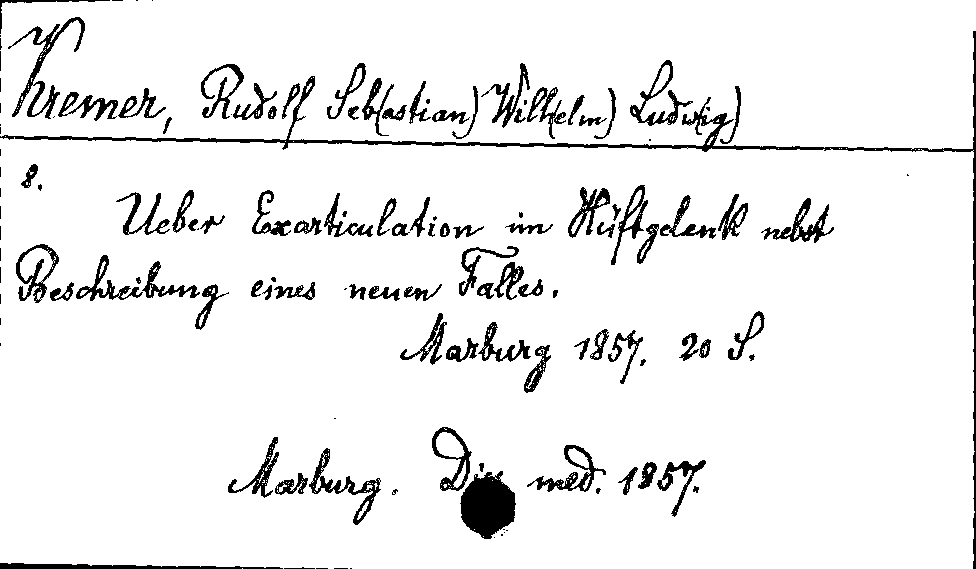 Kremer, Rudolf Seb(astian) Wilh(elm) Ludw(ig)
8.
Ueber Exarticulation im Hüftgelenk nebst
Beschreibung eines neuen Falles.
Marburg 1857. 20 S.
Marburg. Diss med. 1857.